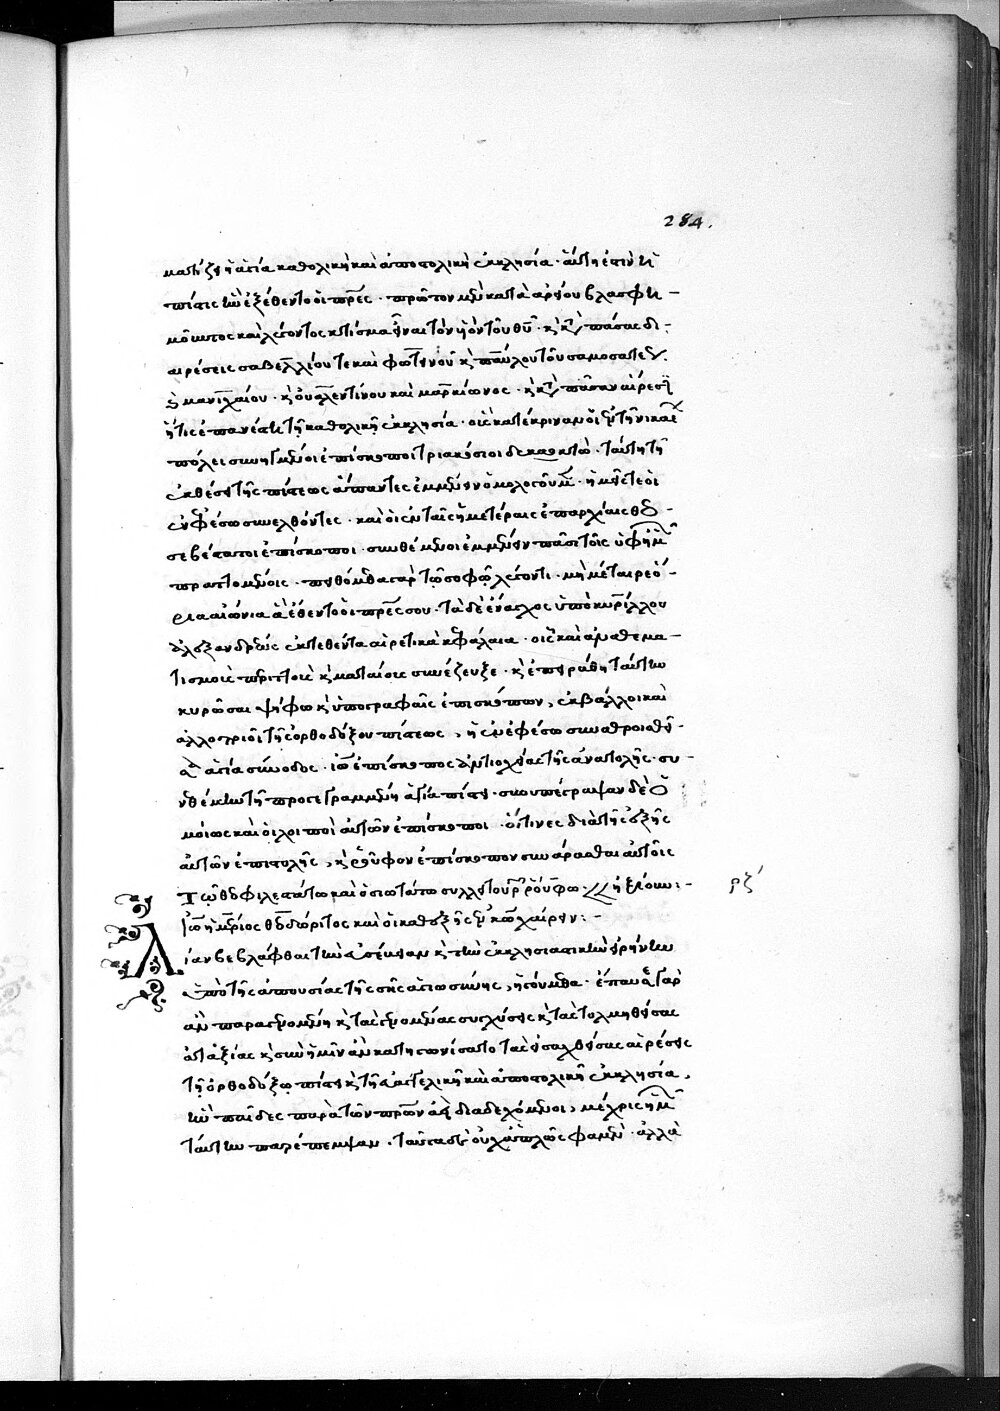 284.
ματίζει ἡ ἁγία καθολικὴ καὶ ἀποστολικὴ ἐκκλησία · αὕτη ἐστὶν ἡ
πίστις ἣν ἐξέθεντο οἱ πρ̅ε̅ς · πρῶτον μὲν κατὰ ἀρείου βλασφη-
μοῦντος καὶ λέγοντος κτίσμα εἶναι τὸν υἱὸν τοῦ θυ̅ · κ̀ κτ̀ πάσας δὲ
αἱρέσεις σαβελλίου τε καὶ φωτεινοῦ κ̀ παύλου τοῦ σαμοσατέως
κ̀ μανιχαίου · κ̀ οὐαλεντίνου καὶ μαρκίωνος · κ̀ κτ̀ πᾶσαν αἵρεσιν
ἥτις ἐπανέστη τῇ καθολικῇ ἐκκλησία · οἷς κατέκριναν οἱ ἐν τῇ νικαέων
πόλει συνηγμένοι ἐπίσκοποι τριακόσιοι δεκαοκτώ · ταύτη τῇ
ἐκθέσει τῆς πίστεως ἅπαντες ἐμμένειν ὁμολογοῦμεν · ἡμεῖς τε οἱ
ἐν ἐφέσω συνελθόντες · καὶ οἱ ἐν ταῖς ἡμετέραις ἐπαρχίαις θεο
σεβέστατοι ἐπίσκοποι · συνθέμενοι ἐμμένειν πᾶσι τοῖς ὑφ' ἡμῶν
πραττομένοις · πειθόμεθα γὰρ τῷ σοφῷ λέγοντι · μὴ μέταιρε ὅ-
ρια αἰώνια ἃ ἔθεντο οἱ πρ̅ε̅ς σου · τὰ δὲ ἔναγχος ὑπὸ κυρίλλου
ἀλεξανδρείας ἐκτεθέντα αἱρετικὰ κεφάλαια · οἷς καὶ ἀναθεμα-
τισμοὺς περιττοὺς κ̀ ματαίους συνέζευξε · κ̀ ἐπειράθη ταύτην
κυρῶσαι ψήφω κ̀ ὑπογραφαῖς ἐπισκόπων, ἐκβάλλοι καὶ
ἀλλοτριοῖ τῆς ὀρθοδόξου πίστεως, ἡ ἐν ἐφέσω συναθροισθεῖ-
σα ἁγία σύνοδος · ἰω̅ ἐπίσκοπος ἀντιοχείας τῆς ἀνατολῆς · συ-
νθέμην τῇ προγεγραμμένη ἁγία πίστει · συνυπέγραψαν δὲ ὁ
μοίως καὶ οἱ λοιποὶ αὐτῶν ἐπίσκοποι · οἵτινες διὰ τῆς ἑξῆς
αὐτῶν ἐπιστολῆς, κ̀ ῥοῦφον ἐπίσκοπον συνάρασθαι αὐτοῖς
Τῷ θεοφιλεστάτω καὶ ὁσιωτάτω συλλειτουργῷ ῥούφω · ἠξίουν :- ρζ´
ἰω̅ ἡμέριος θεοδώριτος καὶ οἱ καθεξῆς ἐν κω̅ χαίρειν :-
Λίαν βεβλάφθαι τὴν εὐσέβειαν κ̀ τὴν ἐκκλησιαστικὴν εἰρήνην
ἐκ τῆς ἀπουσίας τῆς σῆς ἁγιωσύνης, ἡγούμεθα · ἔπαυσας γὰρ
ἂν παραγενομένη κ̀ τὰς γενομένας συγχύσεις κ̀ τὰς τολμηθείσας
ἀταξίας κ̀ σὺν ἡμῖν ἂν κατηγωνίσατο τὰς εἰσαχθείσας αἱρέσεις
τῇ ὀρθοδόξω πίστει κ̀ τῇ εὐαγγελικῇ καὶ ἀποστολικῇ ἐκκλησία,
ἣν παῖδες παρὰ τῶν πρ̅ων ἀεὶ διαδεχόμενοι, μέχρις ἡμῶν
ταύτην παρέπεμψαν · ταῦτα δὲ οὐχ ἁπλῶς φαμὲν · ἀλλὰ